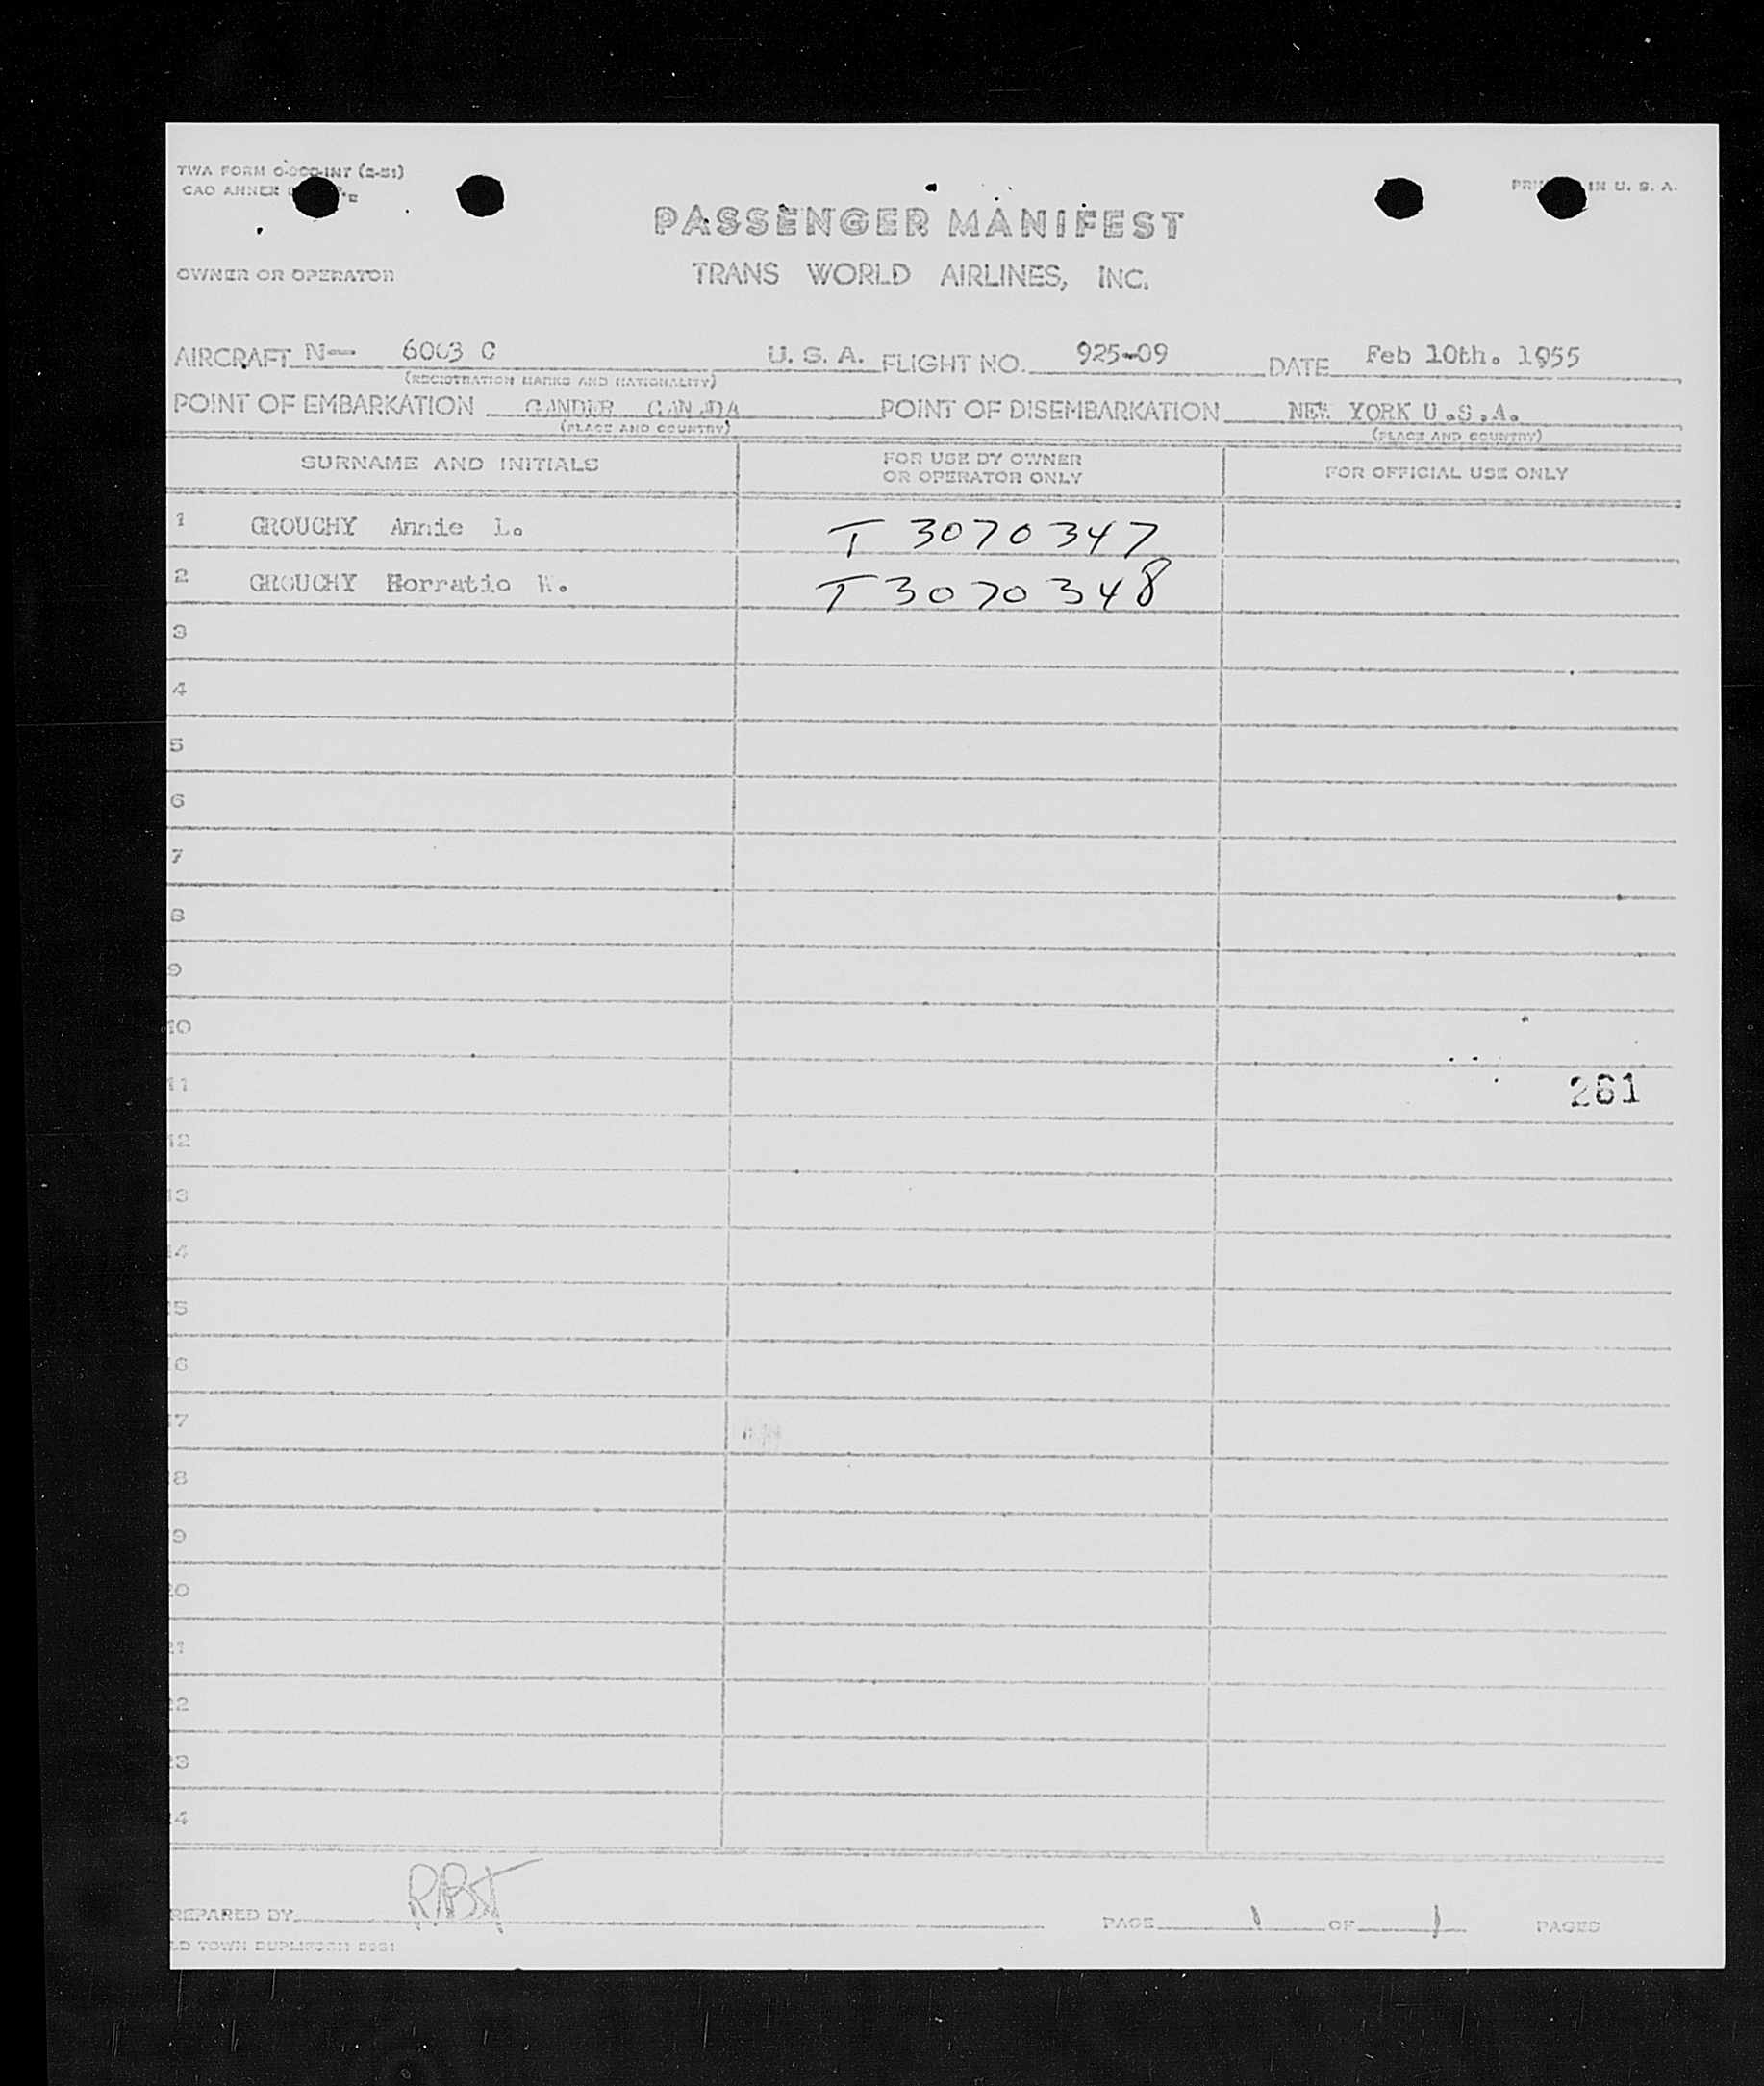 TWA FORM O-300-INT (2-51)
CAO ANNEX
PRINTED IN U. S. A.
PASSENGER MANIFEST
OWNER OR OPERATOR TRANS WORLD AIRLINES, INC.
AIRCRAFT N-- 6003 C U. S. A. FLIGHT NO. 925-09 DATE Feb 10th. 1955
(REGISTRATION MARKS AND NATIONALITY)
POINT OF EMBARKATION GANDER CANADA POINT OF DISEMBARKATION NEW YORK U.S.A.
(PLACE AND COUNTRY) (PLACE AND COUNTRY)
SURNAME AND INITIALS FOR USE BY OWNER OR OPERATOR ONLY FOR OFFICIAL USE ONLY
1 GROUCHY Annie L. T 3070347
2 GROUCHY Horratio W. T 3070348
3
4
5
6
7
8
9
10
11 261
12
13
14
15
16
17
18
19
20
21
22
23
24
REPARED BY RBT PAGE 1 OF 1 PAGES
LD TOWN